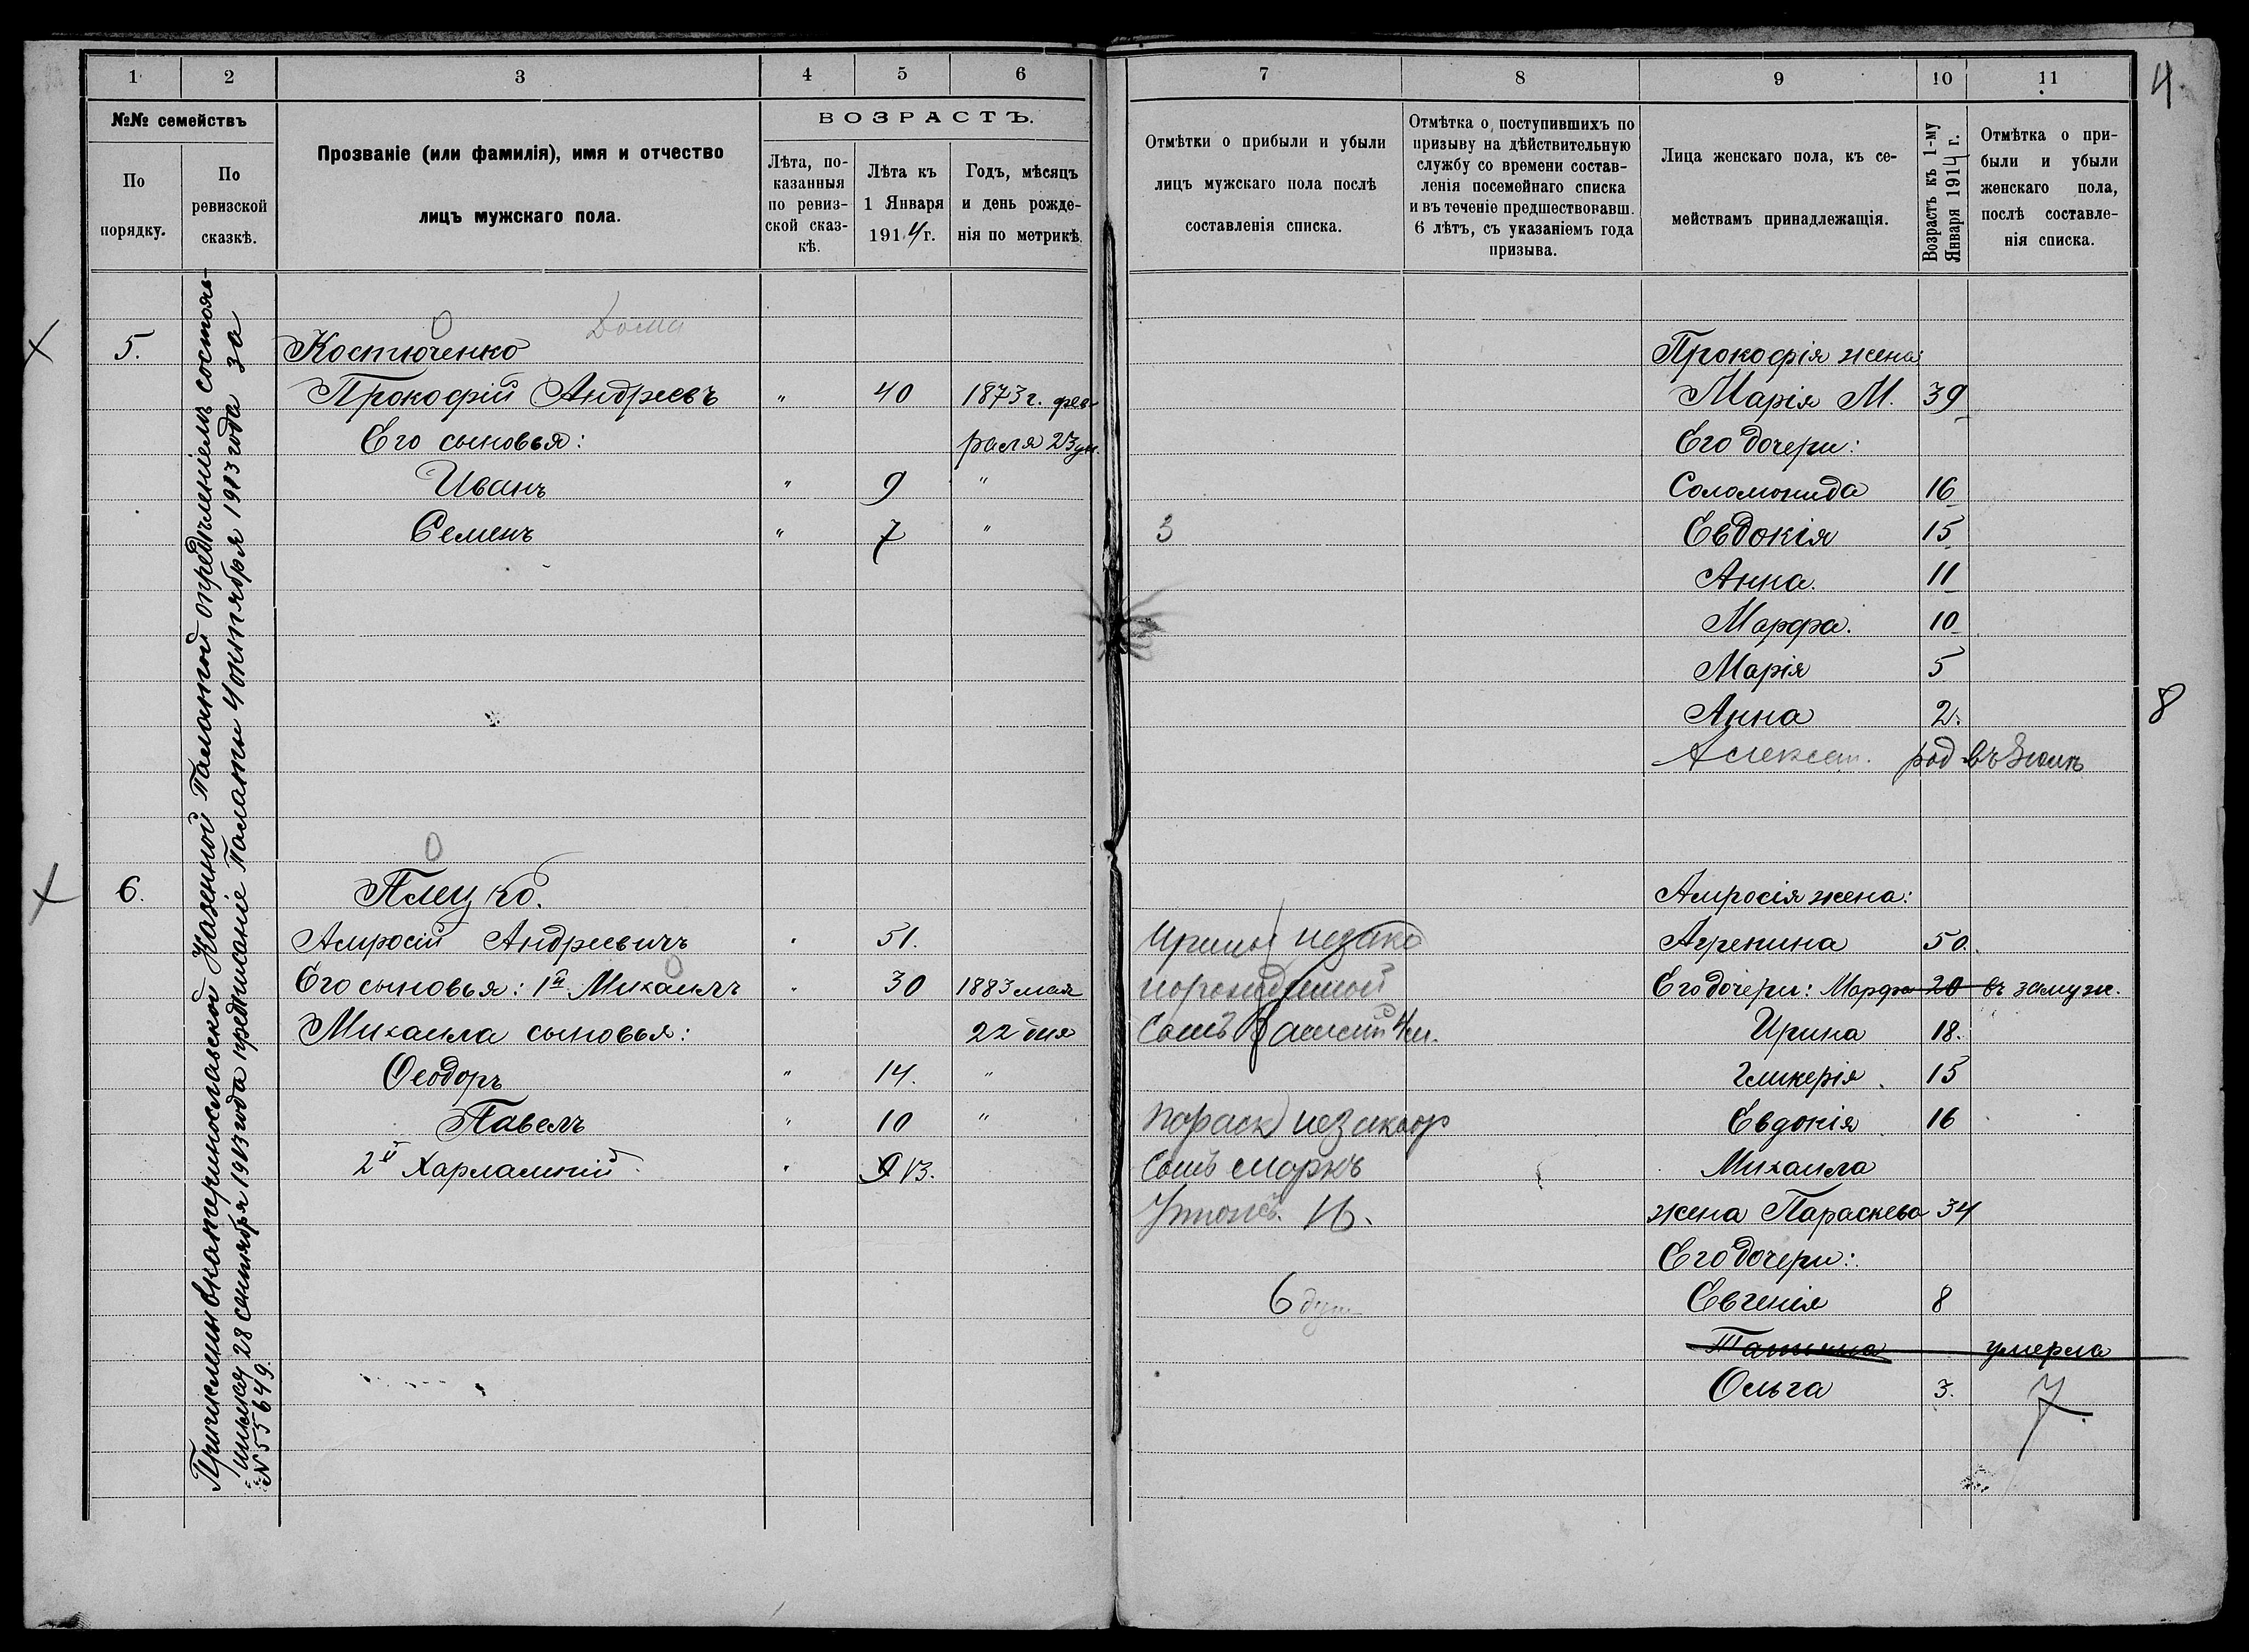 1 2 3 4 5 6 7 8 9 10 11
4
№№ семействъ
По порядку.
По ревизской сказкѣ.
Прозваніе (или фамилія), имя и отчество
лицъ мужскаго пола.
ВОЗРАСТЪ.
Лѣта, по-
казанныя
по ревиз-
ской сказ-
кѣ.
Лѣта къ
1 Января
1914 г.
Годъ, мѣсяцъ
и день рожде-
нія по метрикѣ.
Отмѣтки о прибыли и убыли
лицъ мужскаго пола послѣ
составленія списка.
Отмѣтка о поступившихъ по
призыву на дѣйствительную
службу со времени состав-
ленія посемейнаго списка
и въ теченіе предшествовавш.
6 лѣтъ, съ указаніемъ года
призыва.
Лица женскаго пола, къ се-
мействамъ принадлежащія.
Возрастъ къ 1-му
Января 1914 г.
Отмѣтка о при-
были и убыли
женскаго пола,
послѣ составле-
нія списка.
Причислены Екатеринославской Казенной Палатой опредѣленіемъ состояв-
шимся 28 сентября 1913 года предписаніе Палаты 4 октября 1913 года за
№ 55649.
Дома
5. Костюченко Прокофія жена:
Прокофій Андреевъ " 40 1873 г. фев- Марія М. 39
Его сыновья: раля 23 дн. Его дочери:
Иванъ " 9 " Соломонида 16
Семенъ " 7 " 3 Евдокія 15
Анна. 11
Марфа. 10
Марія 5
Анна 2. 8
Алексан. род въ
6. Плецко. Амросія жена:
Амросій Андреевичъ " 51. Ирины незако Агрепина 50.
Его сыновья: 1й Михаилъ " 30 1883 мая норожденной Его дочери: Марфа 20 въ замуж.
Михаила сыновья: 22 дня Сынъ Василій 4м. Ирина 18.
Ѳеодоръ " 14. " Гликерія 15
Павелъ " 10 " Параск незакнор Евдокія 16
2й Харлампій " 13. Сынъ Маркъ Михаила
16. жена Параскева 34
Его дочери:
6 душ Евгенія 8
Татьяна умерла
Ольга 3. 7